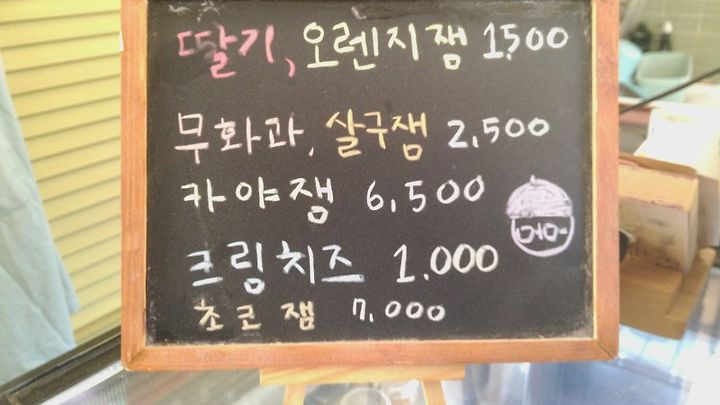 딸기, 오렌지잼 1,500
무화과, 살구잼 2,500
카야잼 6,500
크림치즈 1.000
초코잼 7,000